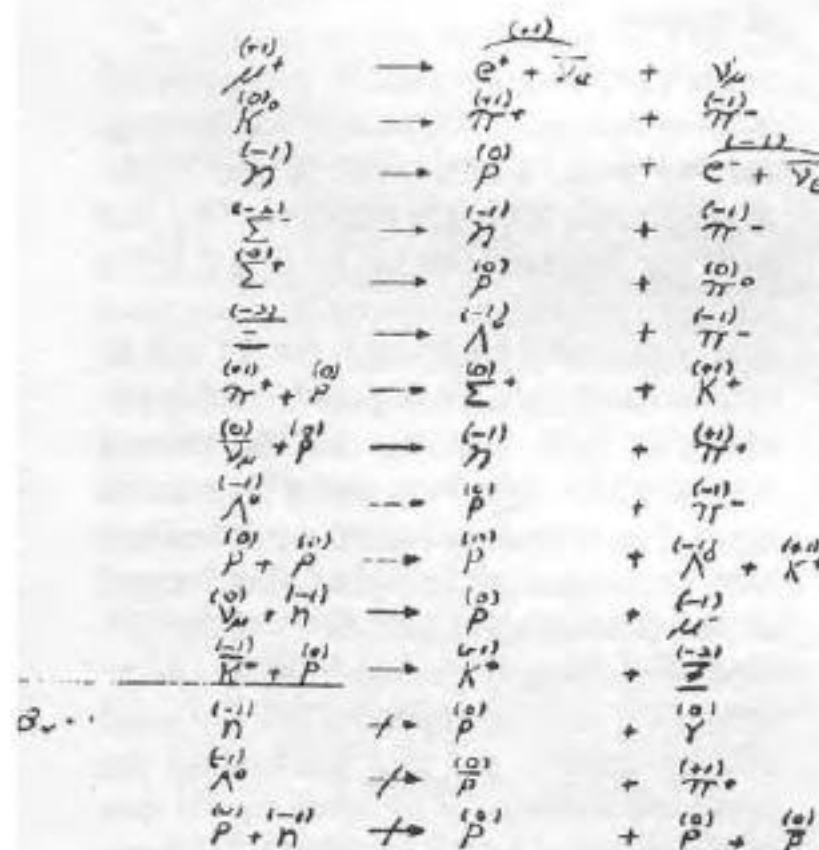 (+1) μ⁺ → (+1) e⁺ + ν̅e + νμ
(0) K⁰ → (+1) π⁺ + (-1) π⁻
(-1) n → (0) p + (-1) e⁻ + ν̅e
(-2) Σ⁻ → (-1) n + (-1) π⁻
(0) Σ⁺ → (0) p + (0) π⁰
(-2) Ξ → (-1) Λ⁰ + (-1) π⁻
(+1) π⁺ + (0) p → (0) Σ⁺ + (+1) K⁺
(0) νμ + (0) p → (-1) n + (+1) π⁺
(-1) Λ⁰ → (0) p + (-1) π⁻
(0) p + (0) p → p + (-1) Λ⁰ + (+1) K⁺
(0) νμ + (-1) n → (0) p + (-1) μ⁻
(-1) K + (0) p → K⁺ + (-2) Ξ
(-1) n ↛ (0) p + (0) γ
(-1) Λ⁰ ↛ (0) p + (+1) π⁺
(0) p + (-1) n ↛ (0) p + (0) p + (0) p̅